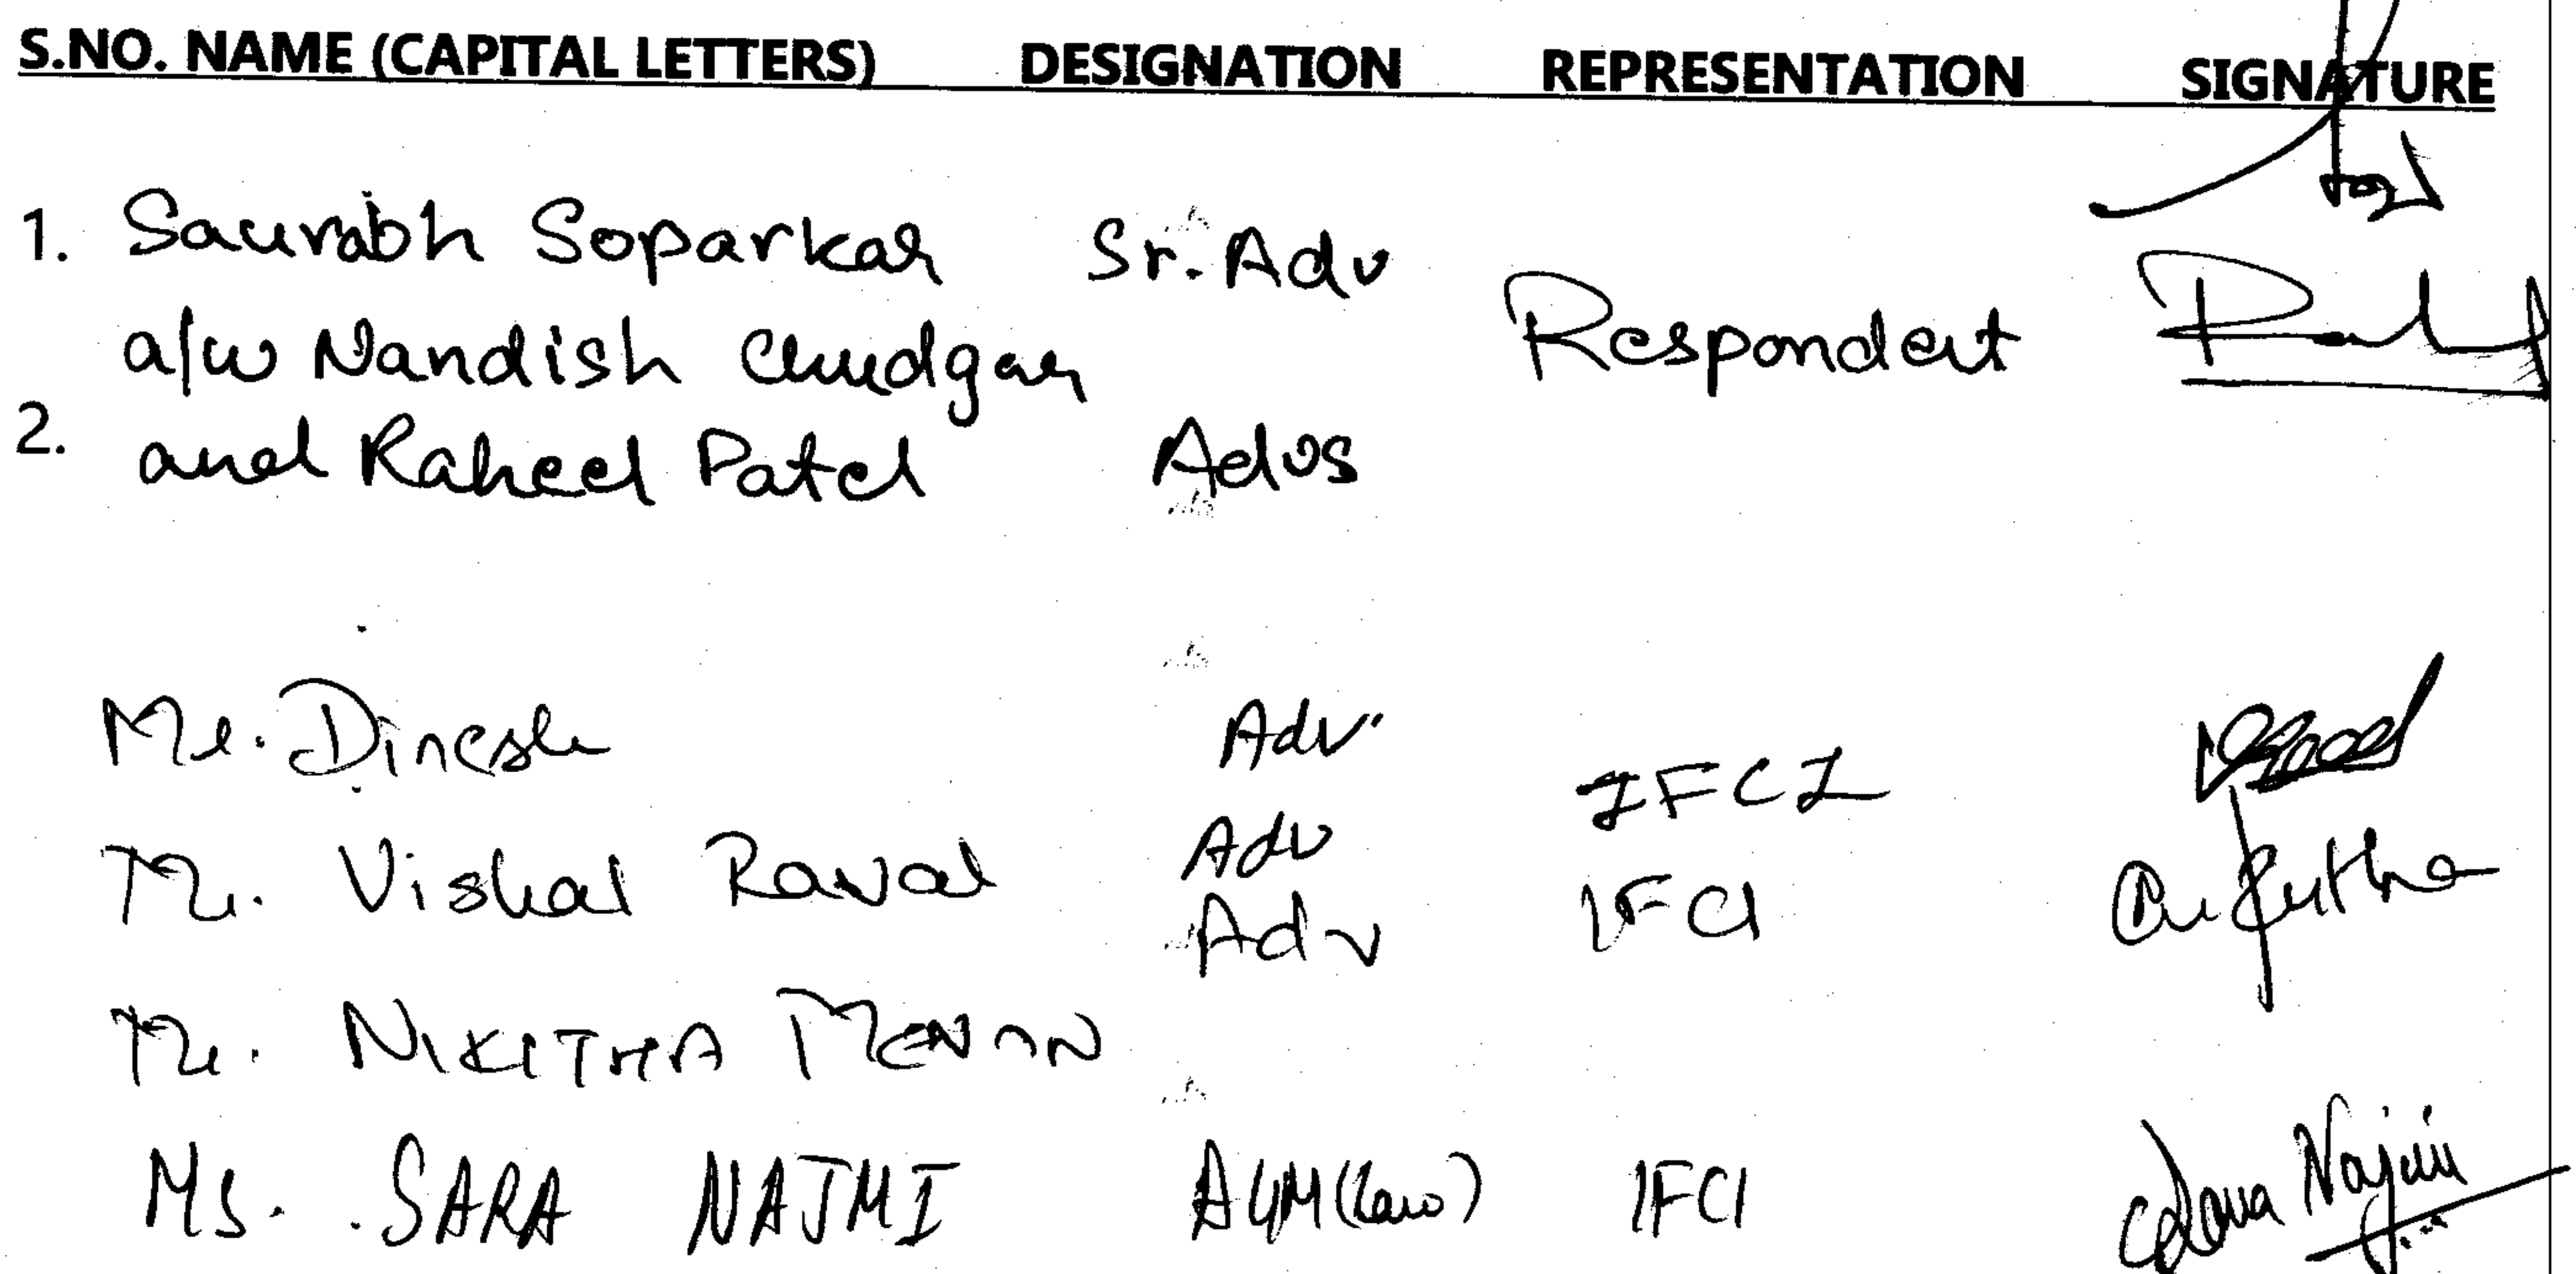 S.NO. NAME (CAPITAL LETTERS) DESIGNATION REPRESENTATION SIGNATURE
1. Saurabh Soparkar Sr. Adv
a/w Nandish Chudgar Respondent
2. and Raheel Patel Advs
Mr. Dinesh Adv
IFCI
Mr. Vishal Raval Adv
Adv IFCI
Mr. NIKITHA MENON
Ms. SARA NAJMI AGM (Law) IFCI Sara Najmi